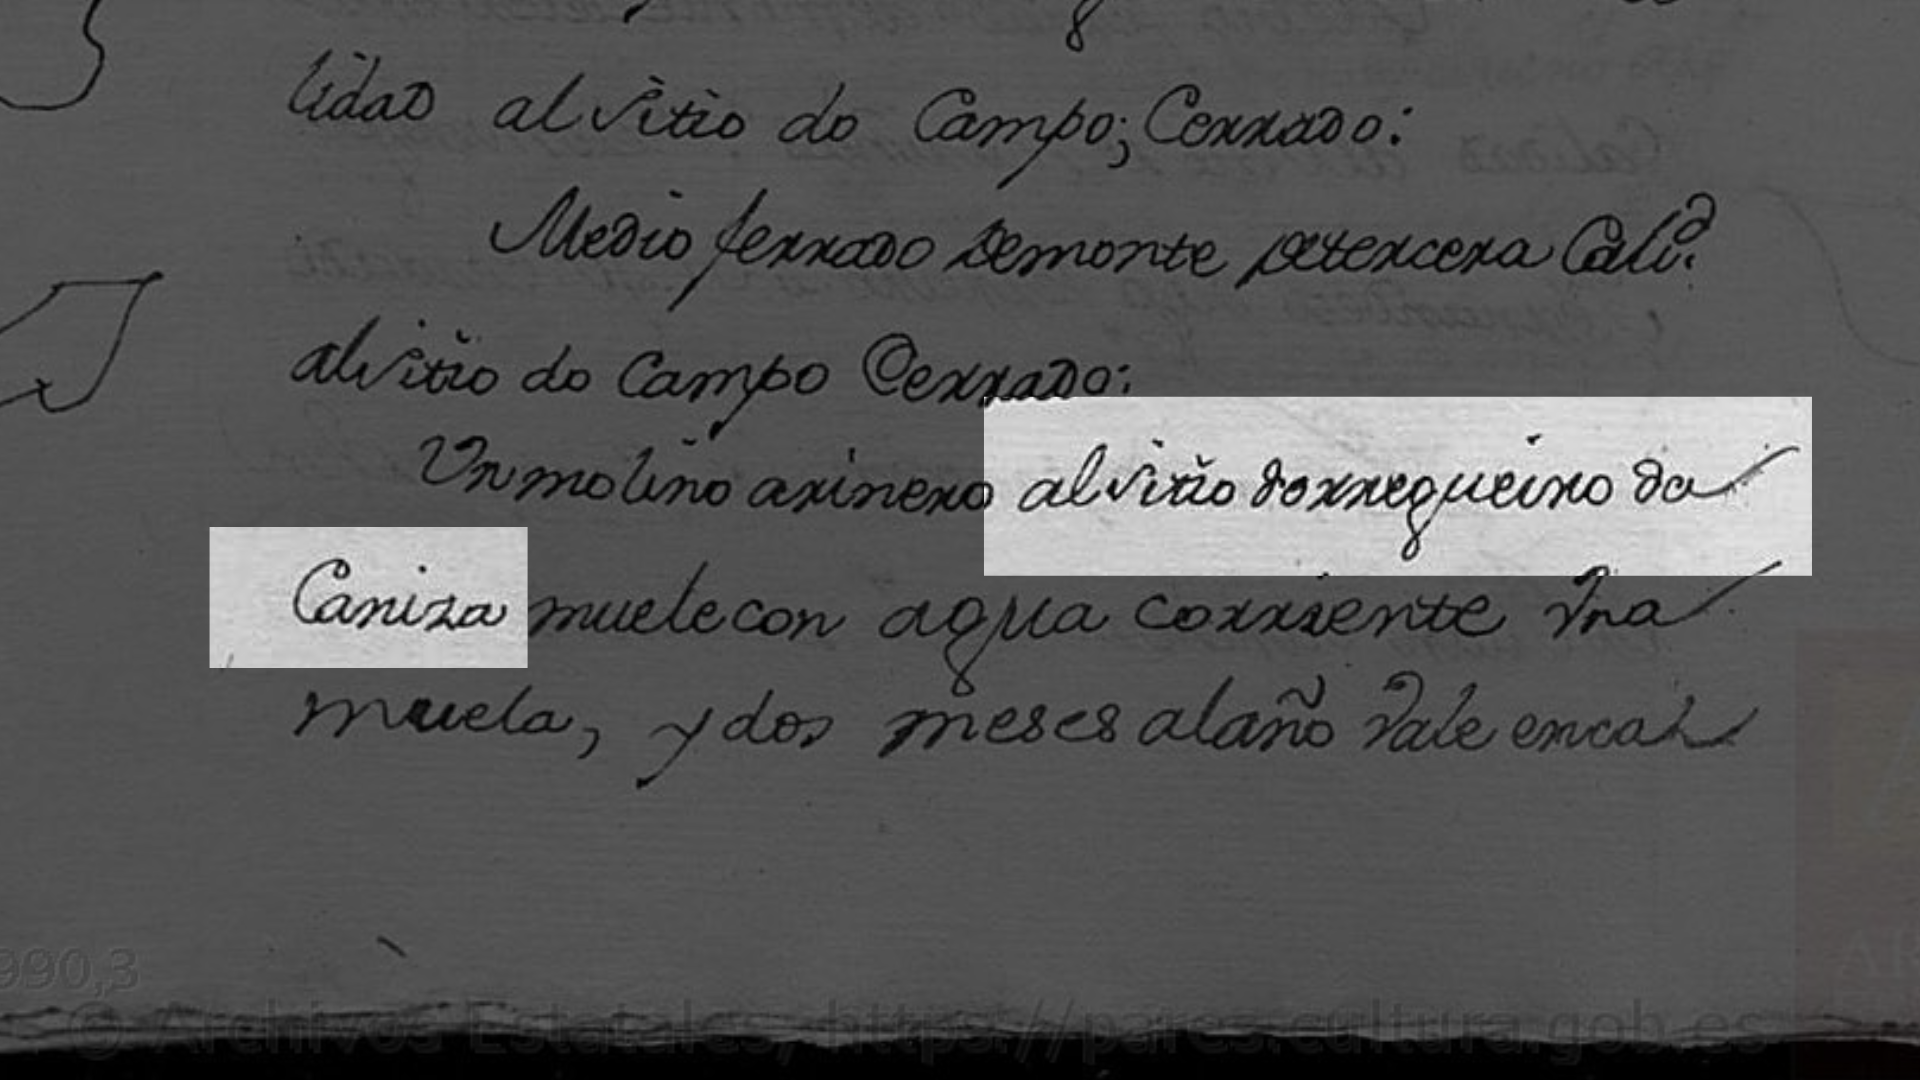 lidad al sitio do Campo; Cerrado:
Medio ferrado demonte detercera Calid.
alsitio do Campo Cerrado:
Un molino arinero alsitio dorregueiro da
Caniza muele con agua corriente Vna
muela, y dos meses alaño Vale encal
990,3
© Archivos Estatales, https://pares.cultura.gob.es